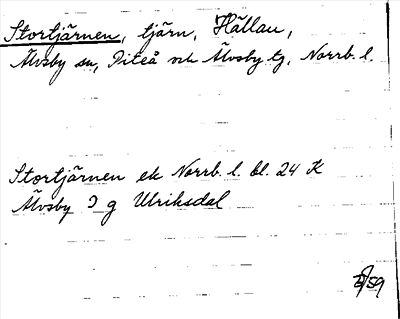 Stortjärnen, tjärn, Hällan,
Älvsby sn, Piteå och Älvsby tg, Norrb. l.
Stortjärnen ek Norrb. l. bl. 24 K
Älvsby J g Ulriksdal
/59